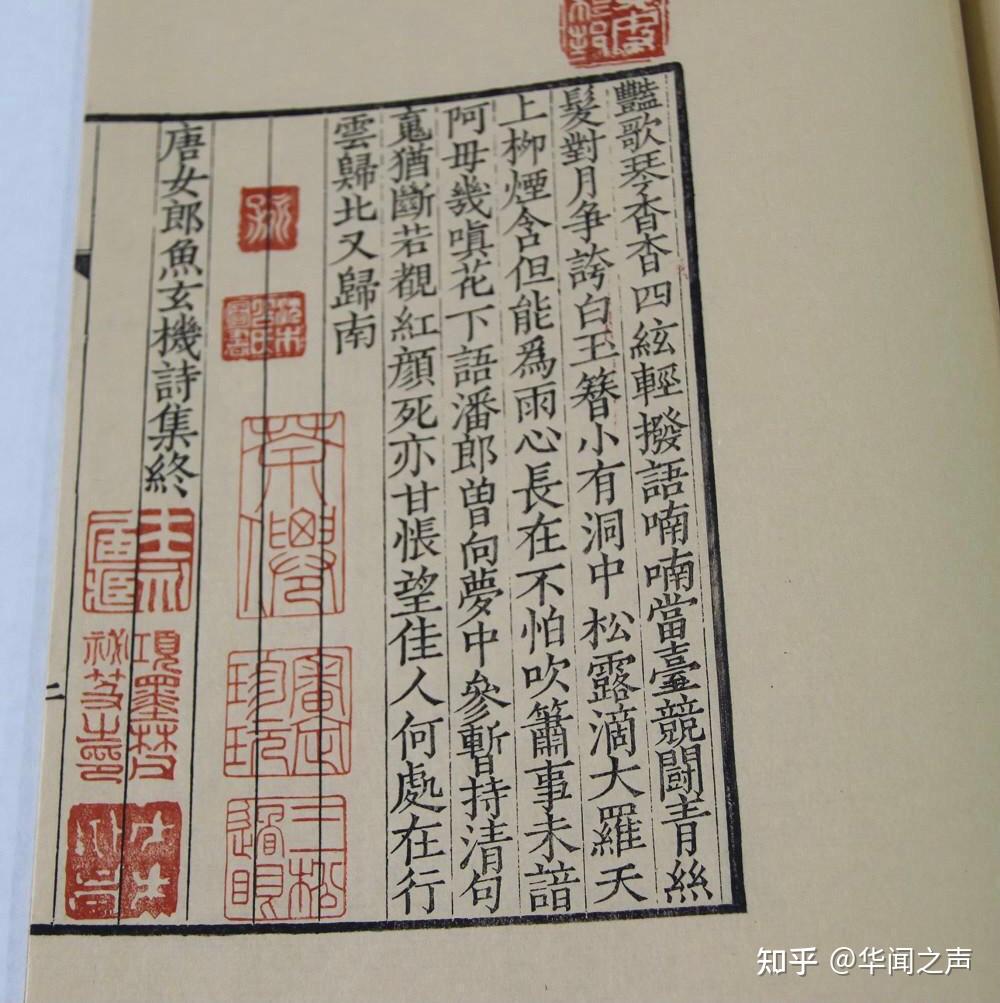 豔歌琴杳杳四絃輕撥語喃喃當臺競鬬青絲
髮對月爭誇白玉簪小有洞中松露滴大羅天
上柳煙含但能為雨心長在不怕吹簫事未諳
阿母幾嗔花下語潘郎曽向夢中參暫持清句
䰟猶斷若覩紅顔死亦甘悵望佳人何處在行
雲歸北又歸南
唐女郎魚玄機詩集終
二
知乎 @华闻之声